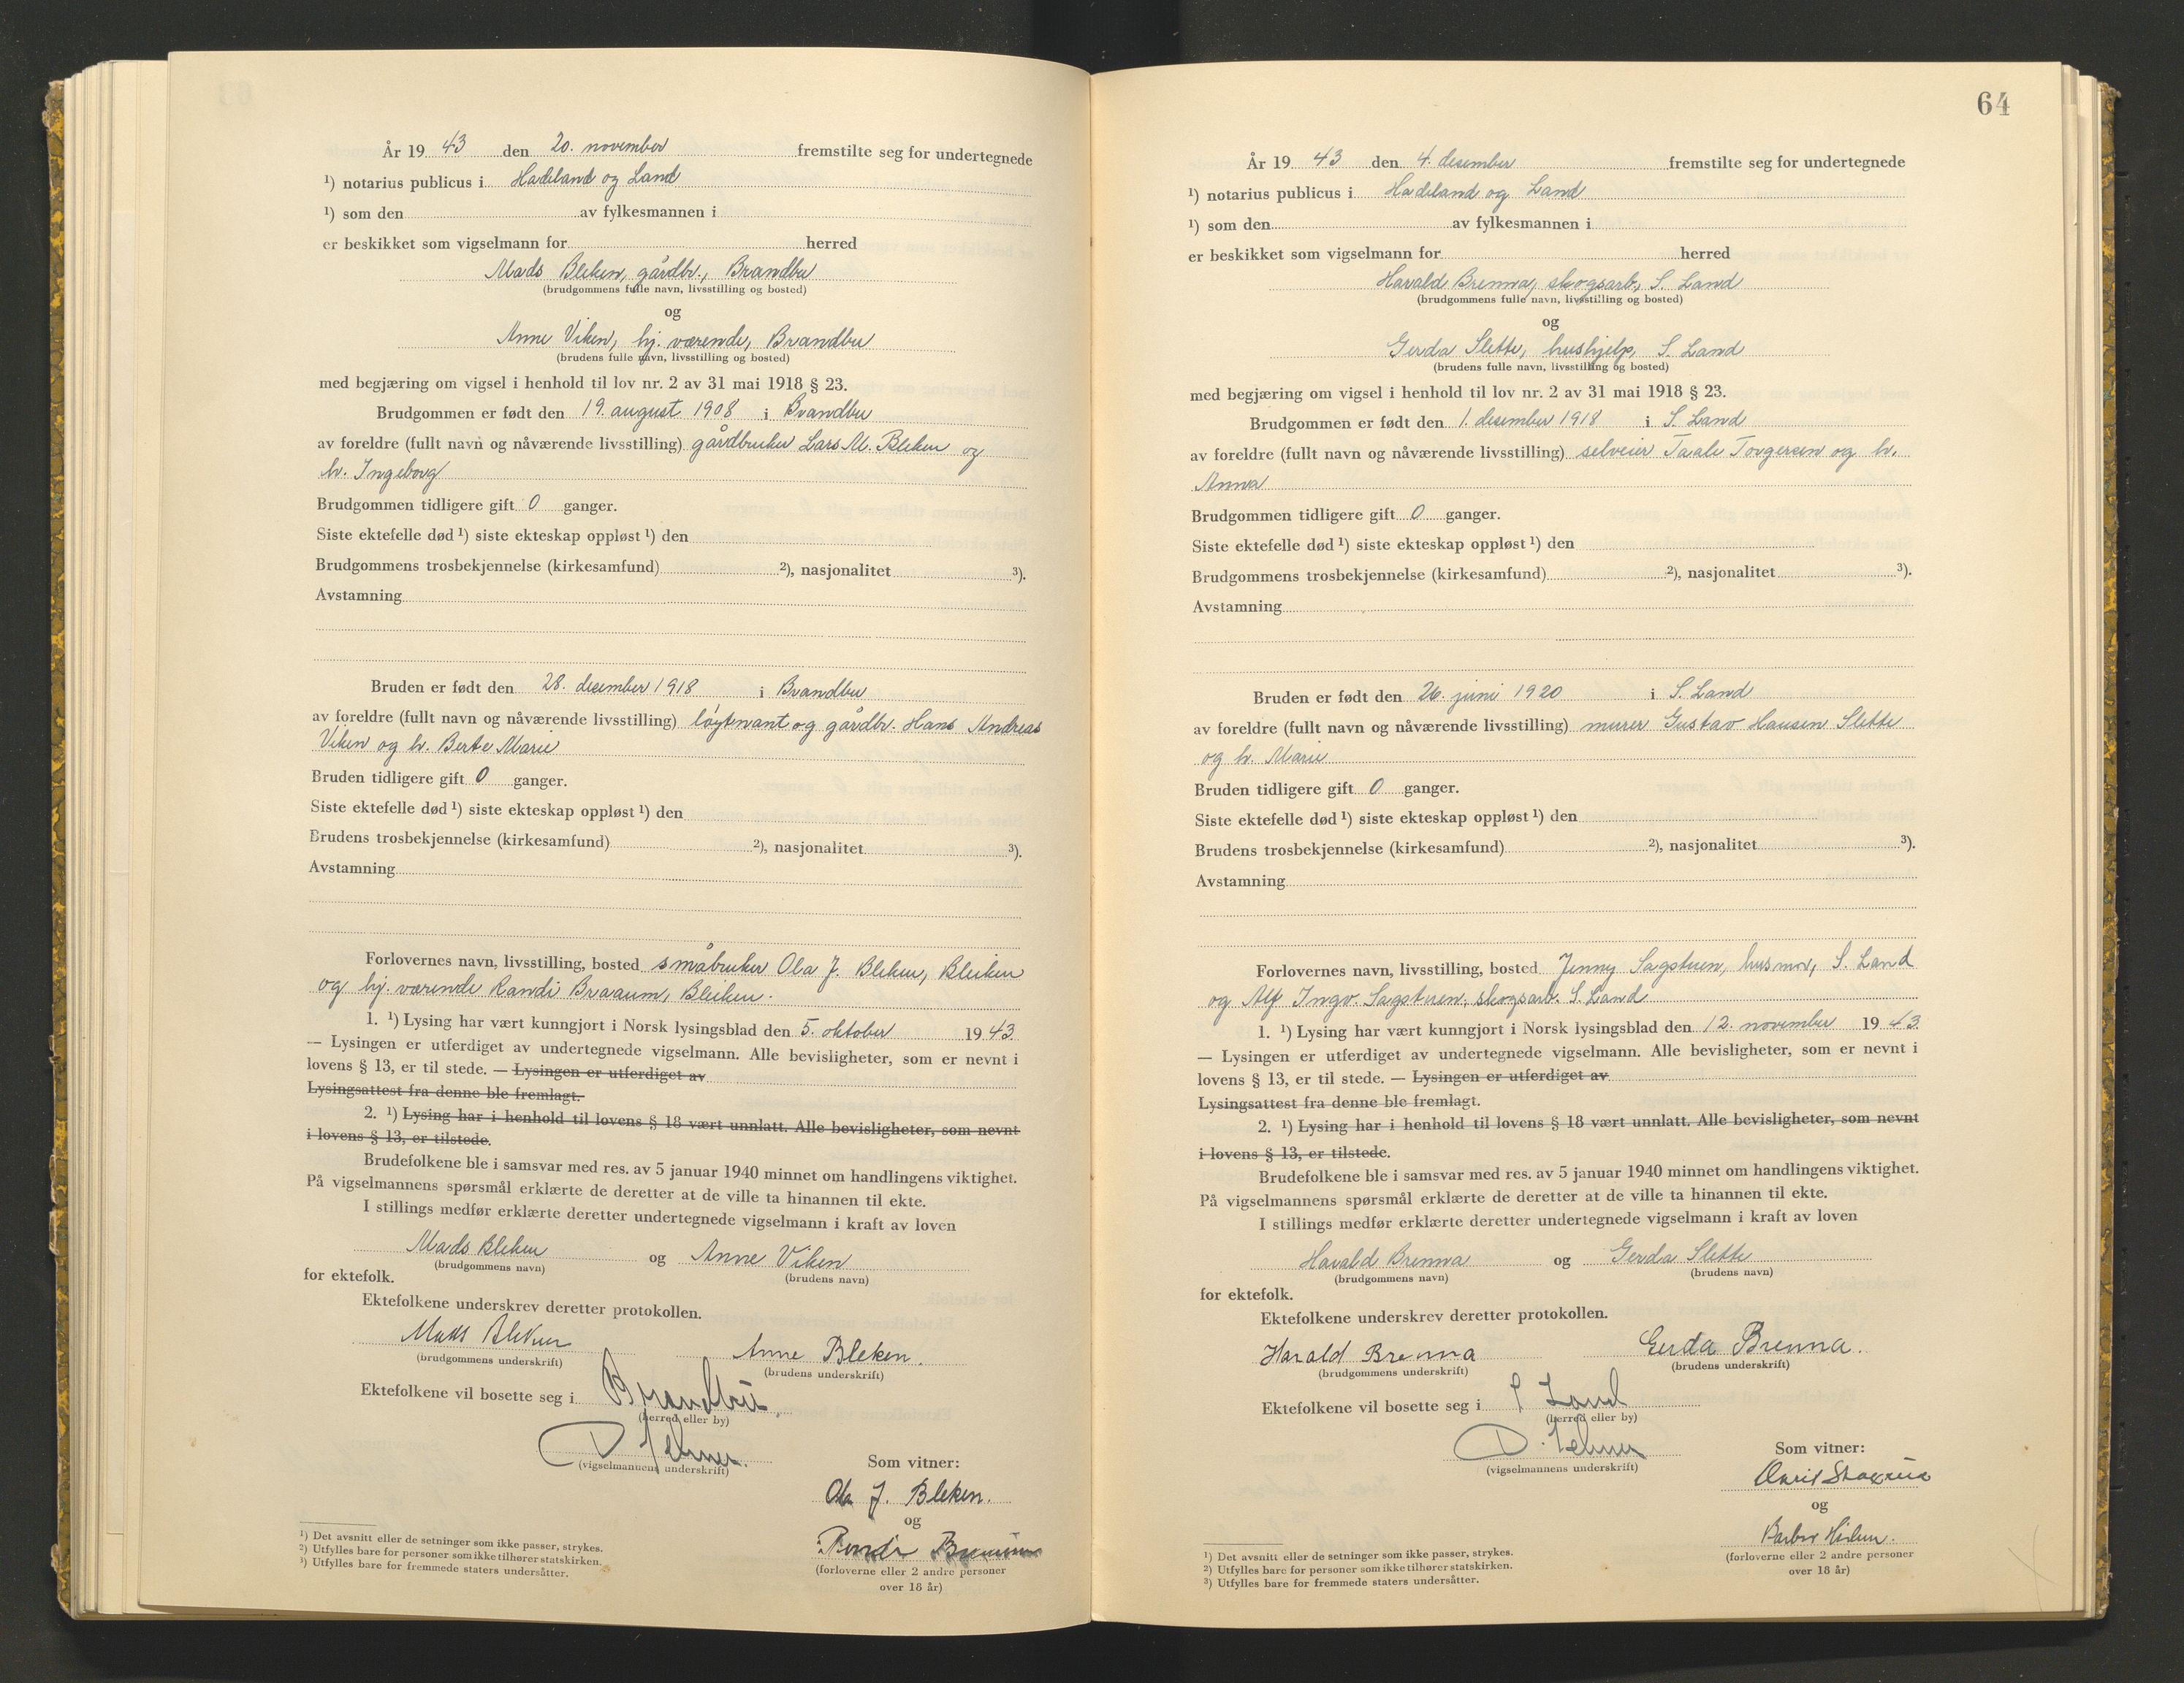 År 19 43 den 20. november fremstilte seg for undertegnede
¹) notarius publicus i Hadeland og Land
¹) som den av fylkesmannen i
er beskikket som vigselmann for herred
Mads Bleken, gårdbr., Brandbu
(brudgommens fulle navn, livsstilling og bosted)
og
Anne Viken, hj. værende, Brandbu
(brudens fulle navn, livsstilling og bosted)
med begjæring om vigsel i henhold til lov nr. 2 av 31 mai 1918 § 23.
Brudgommen er født den 19. august 1908 i Brandbu
av foreldre (fullt navn og nåværende livsstilling) gårdbruker Lars M. Bleken og
h. Ingeborg
Brudgommen tidligere gift 0 ganger.
Siste ektefelle død ¹) siste ekteskap oppløst ¹) den
Brudgommens trosbekjennelse (kirkesamfund) ²), nasjonalitet ³).
Avstamning
Bruden er født den 28. desember 1918 i Brandbu
av foreldre (fullt navn og nåværende livsstilling) løytnant og gårdbr. Hans Andreas
Viken og h. Berte Marie
Bruden tidligere gift 0 ganger.
Siste ektefelle død ¹) siste ekteskap oppløst ¹) den
Brudens trosbekjennelse (kirkesamfund) ²), nasjonalitet ³).
Avstamning
Forlovernes navn, livsstilling, bosted småbruker Ola J. Bleken, Bleiken
og hj. værende Randi Braaum, Bleiken.
1. ¹) Lysing har vært kunngjort i Norsk lysingsblad den 5. oktober 19 43
— Lysingen er utferdiget av undertegnede vigselmann. Alle bevisligheter, som er nevnt i
lovens § 13, er til stede. — Lysingen er utferdiget av
Lysingsattest fra denne ble fremlagt.
2. ¹) Lysing har i henhold til lovens § 18 vært unnlatt. Alle bevisligheter, som nevnt
i lovens § 13, er tilstede.
Brudefolkene ble i samsvar med res. av 5 januar 1940 minnet om handlingens viktighet.
På vigselmannens spørsmål erklærte de deretter at de ville ta hinannen til ekte.
I stillings medfør erklærte deretter undertegnede vigselmann i kraft av loven
Mads Bleken og Anne Viken
(brudgommens navn) (brudens navn)
for ektefolk.
Ektefolkene underskrev deretter protokollen.
Mads Bleken Anne Bleken.
(brudgommens underskrift) (brudens underskrift)
Ektefolkene vil bosette seg i Brandbu.
(herred eller by)
(vigselmannens underskrift)
Som vitner:
Ola J. Bleken.
og
Randi
(forloverne eller 2 andre personer
over 18 år)
¹) Det avsnitt eller de setninger som ikke passer, strykes.
²) Utfylles bare for personer som ikke tilhører statskirken.
³) Utfylles bare for fremmede staters undersåtter.
64
År 19 43 den 4. desember fremstilte seg for undertegnede
¹) notarius publicus i Hadeland og Land
¹) som den av fylkesmannen i
er beskikket som vigselmann for herred
Harald Brenna, skogsarb., S. Land
(brudgommens fulle navn, livsstilling og bosted)
og
Gerda Slette, hushjelp, S. Land
(brudens fulle navn, livsstilling og bosted)
med begjæring om vigsel i henhold til lov nr. 2 av 31 mai 1918 § 23.
Brudgommen er født den 1. desember 1918 i S. Land
av foreldre (fullt navn og nåværende livsstilling) selveier Taale Torgersen og h.
Anna
Brudgommen tidligere gift 0 ganger.
Siste ektefelle død ¹) siste ekteskap oppløst ¹) den
Brudgommens trosbekjennelse (kirkesamfund) ²), nasjonalitet ³).
Avstamning
Bruden er født den 26. juni 1920 i S. Land
av foreldre (fullt navn og nåværende livsstilling) murer Gustav Hansen Slette
og h. Marie
Bruden tidligere gift 0 ganger.
Siste ektefelle død ¹) siste ekteskap oppløst ¹) den
Brudens trosbekjennelse (kirkesamfund) ²), nasjonalitet ³).
Avstamning
Forlovernes navn, livsstilling, bosted Jenny Sagstuen, husmor, S. Land
og Alf Ingv. Sagstuen, skogsarb. S. Land
1. ¹) Lysing har vært kunngjort i Norsk lysingsblad den 12. november 19 43
— Lysingen er utferdiget av undertegnede vigselmann. Alle bevisligheter, som er nevnt i
lovens § 13, er til stede. — Lysingen er utferdiget av
Lysingsattest fra denne ble fremlagt.
2. ¹) Lysing har i henhold til lovens § 18 vært unnlatt. Alle bevisligheter, som nevnt
i lovens § 13, er tilstede.
Brudefolkene ble i samsvar med res. av 5 januar 1940 minnet om handlingens viktighet.
På vigselmannens spørsmål erklærte de deretter at de ville ta hinannen til ekte.
I stillings medfør erklærte deretter undertegnede vigselmann i kraft av loven
Harald Brenna og Gerda Slette
(brudgommens navn) (brudens navn)
for ektefolk.
Ektefolkene underskrev deretter protokollen.
Harald Brenna Gerda Brenna.
(brudgommens underskrift) (brudens underskrift)
Ektefolkene vil bosette seg i S Land
(herred eller by)
(vigselmannens underskrift)
Som vitner:
og
(forloverne eller 2 andre personer
over 18 år)
¹) Det avsnitt eller de setninger som ikke passer, strykes.
²) Utfylles bare for personer som ikke tilhører statskirken.
³) Utfylles bare for fremmede staters undersåtter.